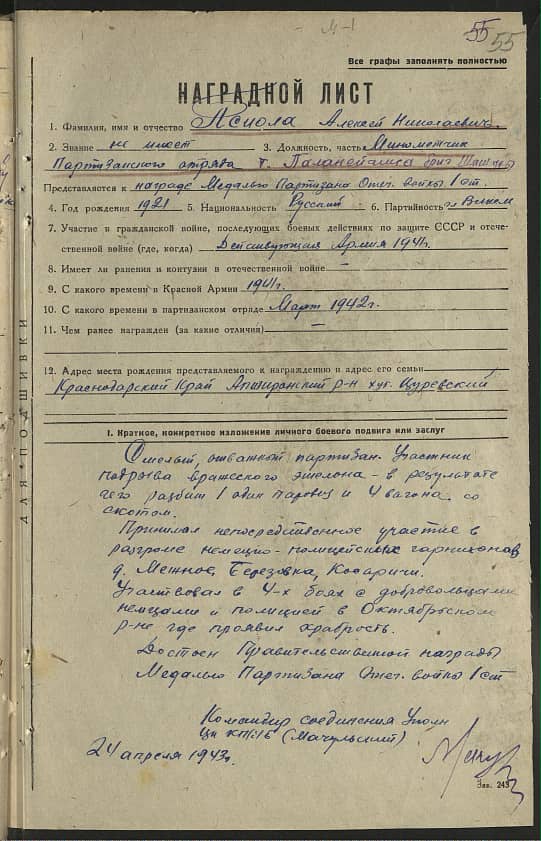 55 55
Все графы заполнять полностью
НАГРАДНОЙ ЛИСТ
1. Фамилия, имя и отчество Псиола Алексей Николаевич.
2. Звание не имеет 3. Должность, часть Минометчик
Партизанского отряда т.
Представляется к награде Медалью Партизана Отеч. войны I ст.
4. Год рождения 1921 5. Национальность Русский 6. Партийность чл Влксм
7. Участие в гражданской войне, последующих боевых действиях по защите СССР и отече-
ственной войне (где, когда) Действующая Армия 1941г.
8. Имеет ли ранения и контузии в отечественной войне —
9. С какого времени в Красной Армии 1941г.
10. С какого времени в партизанском отряде Март 1942г.
11. Чем ранее награжден (за какие отличия) —
12. Адрес места рождения представляемого к награждению и адрес его семьи
Краснодарский Край Апширонский р-н хут. Цуревский
ДЛЯ ПОДШИВКИ
I. Краткое, конкретное изложение личного боевого подвига или заслуг
Смелый, отважный партизан. Участник
подрыва вражеского эшелона - в результате
чего разбит 1 один паровоз и 4 вагона со
скотом.
Принимал непосредственное участие в
разгроме немецко-полицейских гарнизонов
д. Межное, Березовка, Косаричи.
Участвовал в 4-х боях с добровольцами
немцами и полицией в Октябрьском
р-не где проявил храбрость.
Достоен Правительственной награды
Медалью Партизана Отеч. войны I ст
Командир соединения Уполн
Цк КП/б/Б (Мачульский)
24 апреля 1943г.
Зак. 243